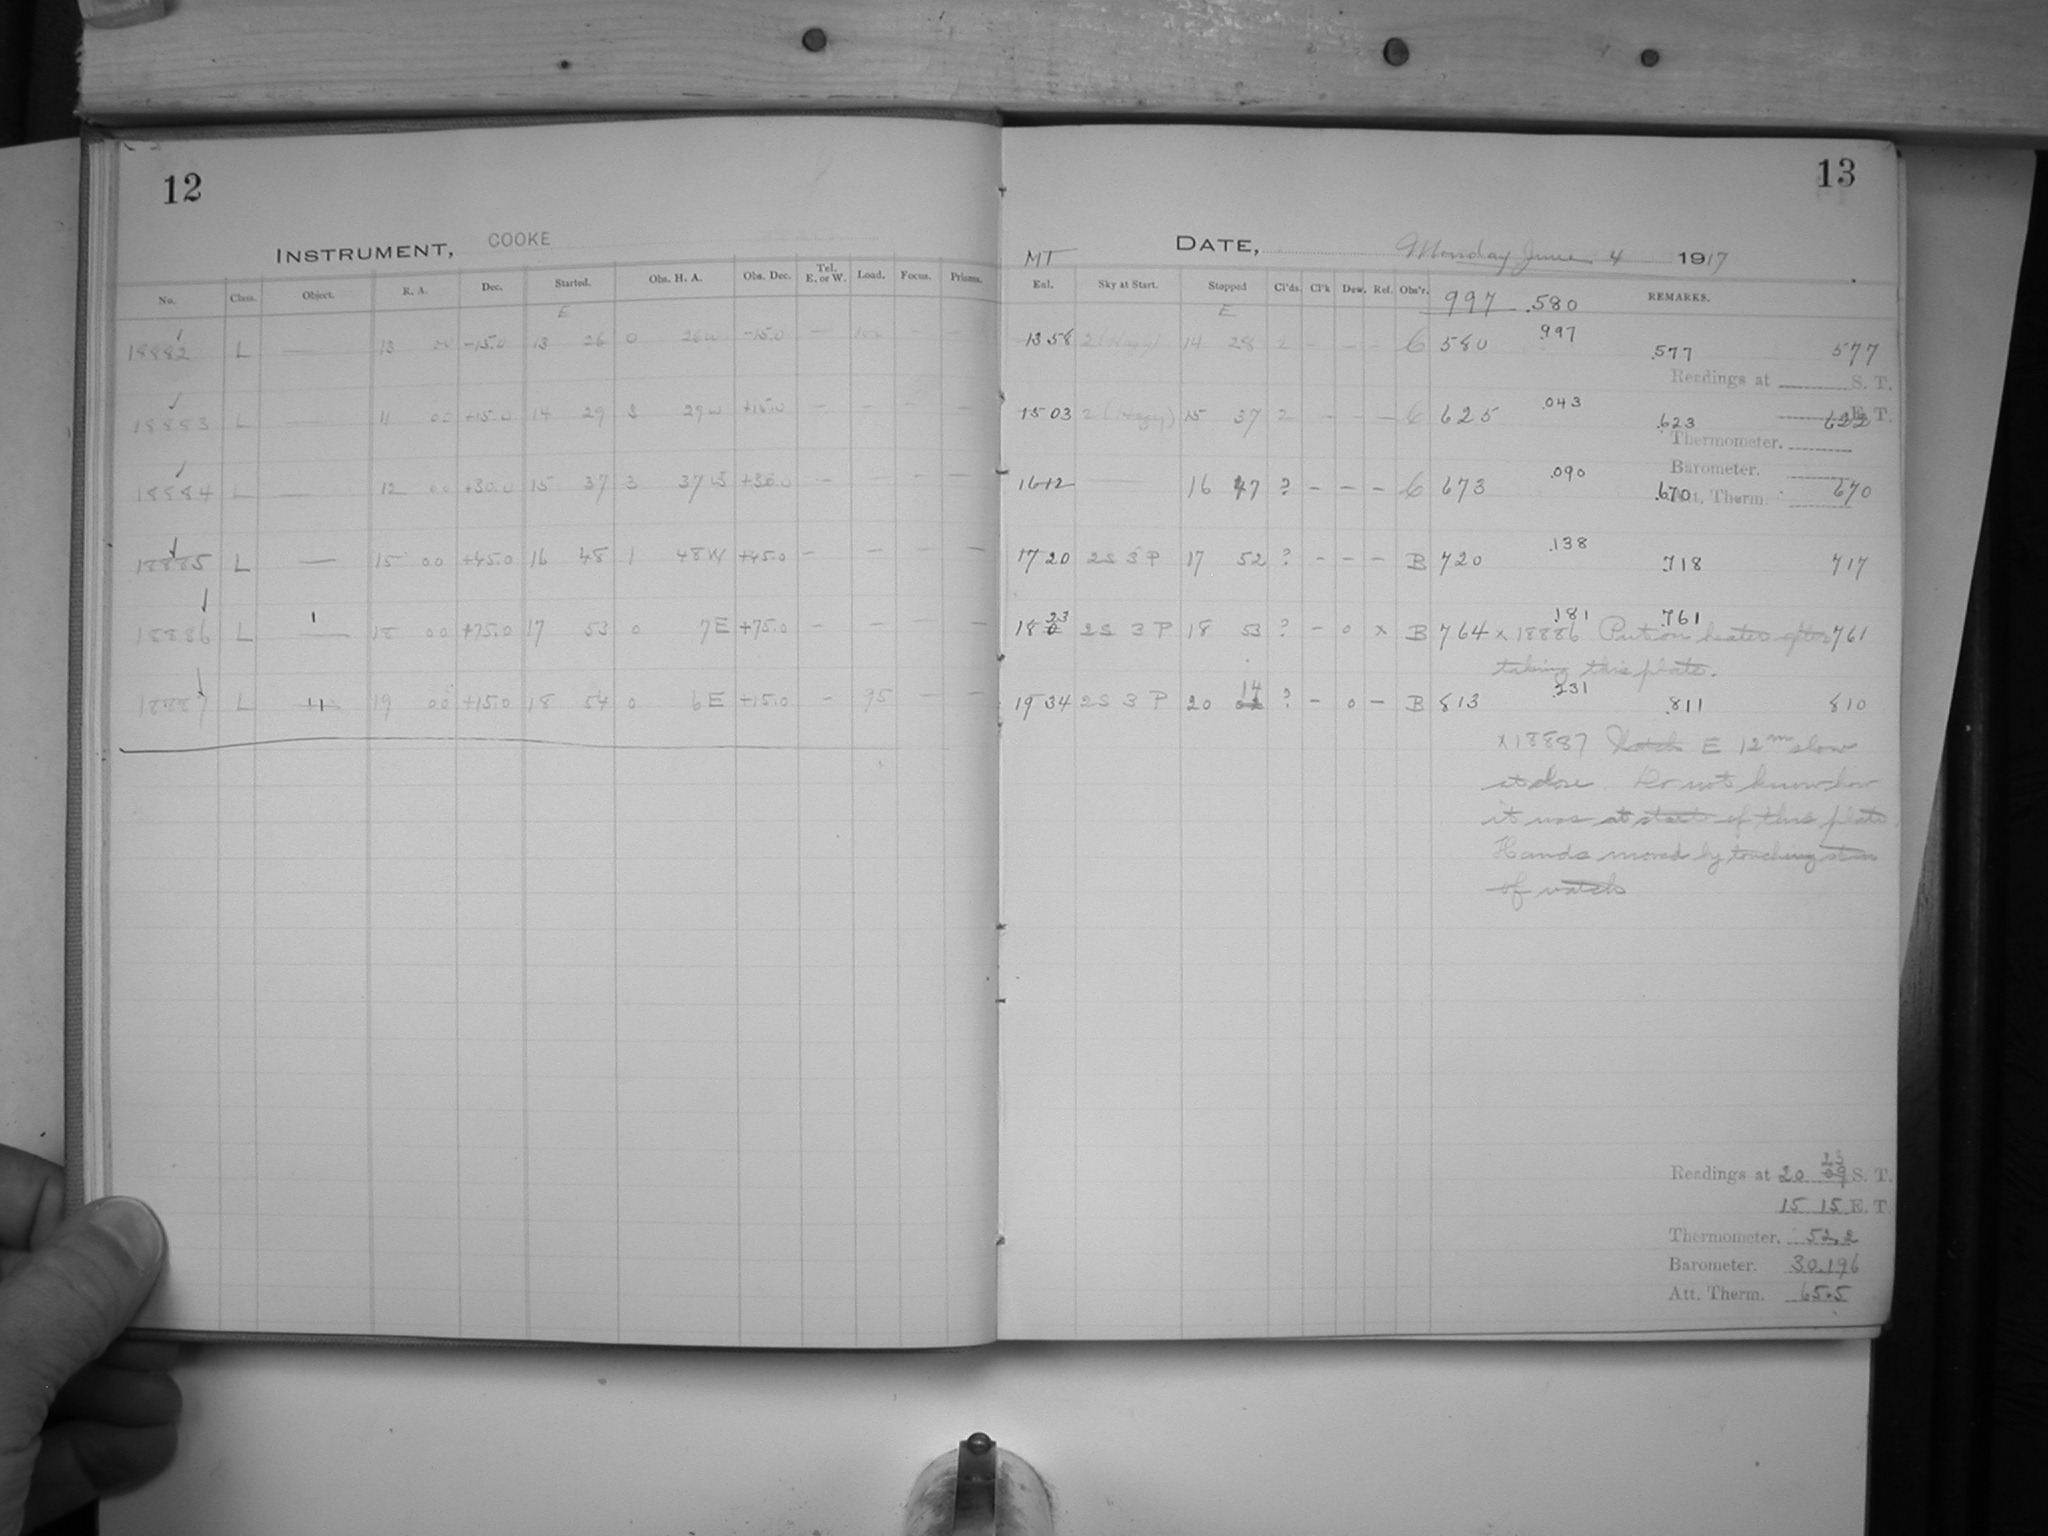 12
INSTRUMENT, COOKE
No. Class. Object. R. A. Dec. Started. Obs. H. A. Obs. Dec. Tel. E. or W. Load. Focus. Prisms.
E
18882 L — 13 00 -15.0 13 26 0 26W -15.0 — — —
18883 L — 11 00 +15.0 14 29 3 29W +15.0 — — — —
18884 L — 12 00 +30.0 15 37 3 37W +30.0 — — — —
18885 L — 15 00 +45.0 16 48 1 48W +45.0 — — — —
18886 L — 18 00 +75.0 17 53 0 7E +75.0 — — — —
18887 L — 19 00 +15.0 18 54 0 6E +15.0 — 95 — —
13
MT DATE, Monday June 4 1917
Enl. Sky at Start. Stopped Cl'ds. Cl'k Dew. Ref. Obs'r. 997 .580 REMARKS.
E
1358 2 (Hazy) 14 28 2 — — — C 580 .997 .577 577
Readings at S. T.
1503 2 (Hazy) 15 37 2 — — — C 625 .043 .623 622
E. T.
Thermometer.
Barometer.
1612 — 16 47 ? — — — C 673 .090 .670 670
Att. Therm.
1720 2S 3P 17 52 ? — — — B 720 .138 .718 717
18 23 2S 3P 18 53 ? — 0 x B 764 .181 .761 761
x 18886 Put on heater after
taking this plate.
1934 2S 3P 20 14 ? — 0 — B 813 .231 .811 810
x 18887 Watch E 12m slow
at close. Do not know how
it was at start of this plate
Hands moved by touching stem
of watch
Readings at 20 23 09 S. T.
15 15 E. T.
Thermometer. 52.2
Barometer. 30.196
Att. Therm. 65.5